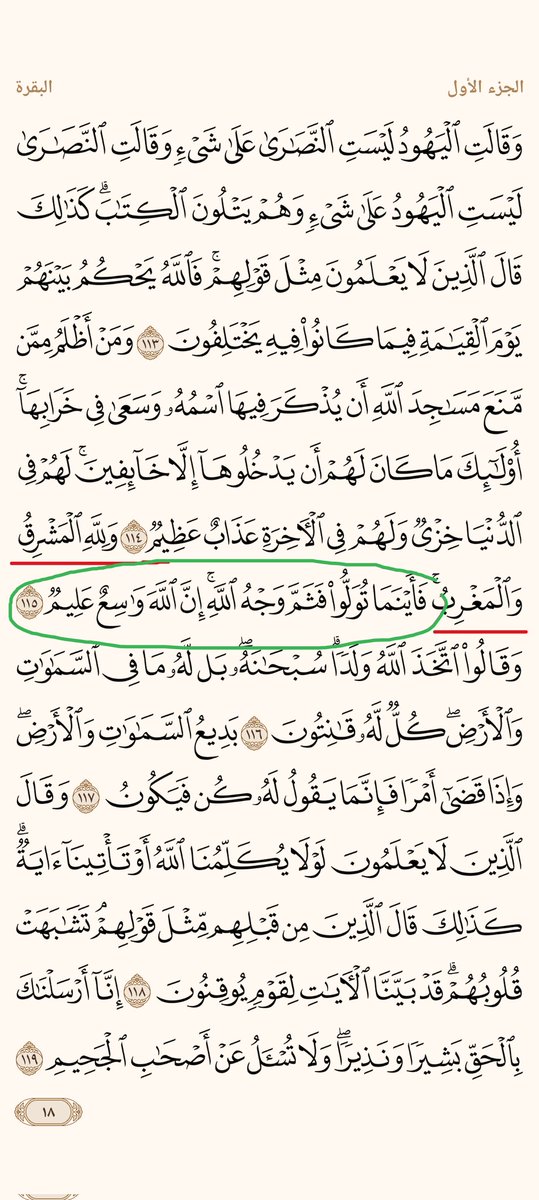 الجزء الأول
البقرة
وَقَالَتِ ٱلۡيَهُودُ لَيۡسَتِ ٱلنَّصَٰرَىٰ عَلَىٰ شَيۡءٖ وَقَالَتِ ٱلنَّصَٰرَىٰ
لَيۡسَتِ ٱلۡيَهُودُ عَلَىٰ شَيۡءٖ وَهُمۡ يَتۡلُونَ ٱلۡكِتَٰبَۗ كَذَٰلِكَ
قَالَ ٱلَّذِينَ لَا يَعۡلَمُونَ مِثۡلَ قَوۡلِهِمۡۚ فَٱللَّهُ يَحۡكُمُ بَيۡنَهُمۡ
يَوۡمَ ٱلۡقِيَٰمَةِ فِيمَا كَانُواْ فِيهِ يَخۡتَلِفُونَ ١١٣ وَمَنۡ أَظۡلَمُ مِمَّن
مَّنَعَ مَسَٰجِدَ ٱللَّهِ أَن يُذۡكَرَ فِيهَا ٱسۡمُهُۥ وَسَعَىٰ فِي خَرَابِهَآۚ
أُوْلَٰٓئِكَ مَا كَانَ لَهُمۡ أَن يَدۡخُلُوهَآ إِلَّا خَآئِفِينَۚ لَهُمۡ فِي
ٱلدُّنۡيَا خِزۡيٞ وَلَهُمۡ فِي ٱلۡأٓخِرَةِ عَذَابٌ عَظِيمٞ ١١٤ وَلِلَّهِ ٱلۡمَشۡرِقُ
وَٱلۡمَغۡرِبُۚ فَأَيۡنَمَا تُوَلُّواْ فَثَمَّ وَجۡهُ ٱللَّهِۚ إِنَّ ٱللَّهَ وَٰسِعٌ عَلِيمٞ ١١٥
وَقَالُواْ ٱتَّخَذَ ٱللَّهُ وَلَدٗاۗ سُبۡحَٰنَهُۥۖ بَل لَّهُۥ مَا فِي ٱلسَّمَٰوَٰتِ
وَٱلۡأَرۡضِۖ كُلّٞ لَّهُۥ قَٰنِتُونَ ١١٦ بَدِيعُ ٱلسَّمَٰوَٰتِ وَٱلۡأَرۡضِۖ
وَإِذَا قَضَىٰٓ أَمۡرٗا فَإِنَّمَا يَقُولُ لَهُۥ كُن فَيَكُونُ ١١٧ وَقَالَ
ٱلَّذِينَ لَا يَعۡلَمُونَ لَوۡلَا يُكَلِّمُنَا ٱللَّهُ أَوۡ تَأۡتِينَآ ءَايَةٞۗ
كَذَٰلِكَ قَالَ ٱلَّذِينَ مِن قَبۡلِهِم مِّثۡلَ قَوۡلِهِمۡۘ تَشَٰبَهَتۡ
قُلُوبُهُمۡۗ قَدۡ بَيَّنَّا ٱلۡأٓيَٰتِ لِقَوۡمٖ يُوقِنُونَ ١١٨ إِنَّآ أَرۡسَلۡنَٰكَ
بِٱلۡحَقِّ بَشِيرٗا وَنَذِيرٗاۖ وَلَا تُسۡـَٔلُ عَنۡ أَصۡحَٰبِ ٱلۡجَحِيمِ ١١٩
١٨